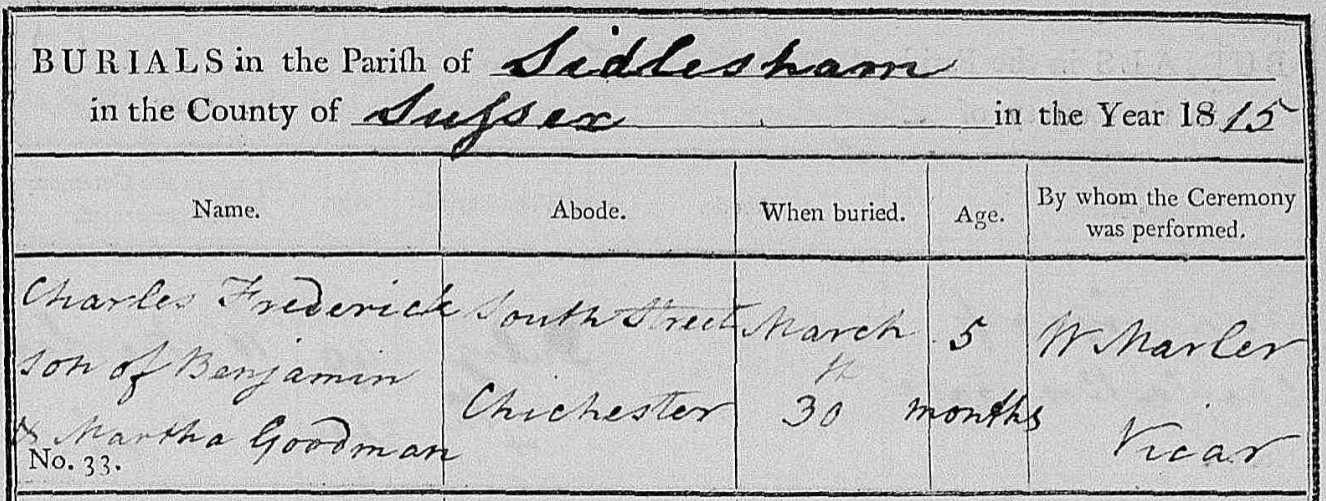 BURIALS in the Pariſh of Sidlesham
in the County of Suſsex in the Year 1815
Name.
Abode.
When buried.
Age.
By whom the Ceremony
was performed.
Charles Frederick
son of Benjamin
& Martha Goodman
No. 33.
South Street
Chichester
March
30th
5
months
W Marler
Vicar